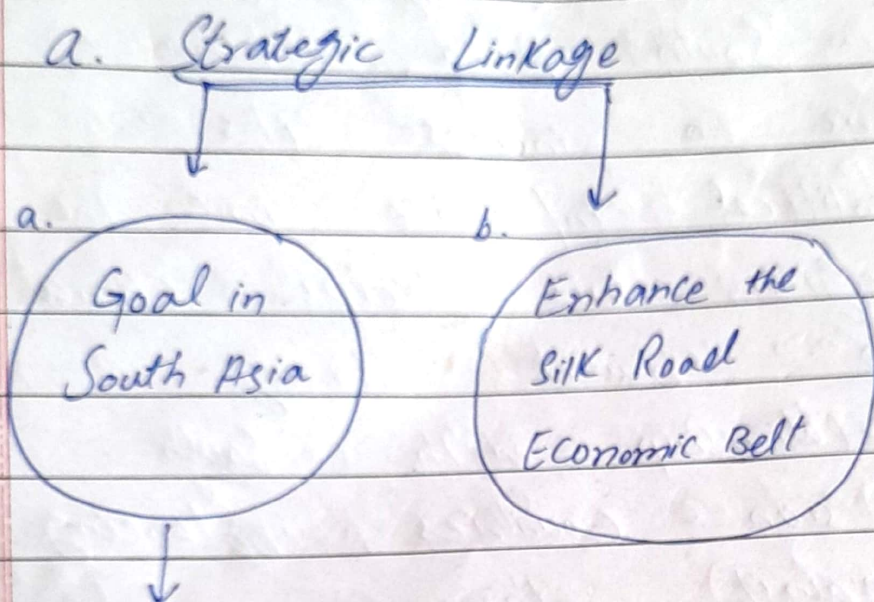 a. Strategic Linkage
a.
Goal in
South Asia
b.
Enhance the
Silk Road
Economic Belt